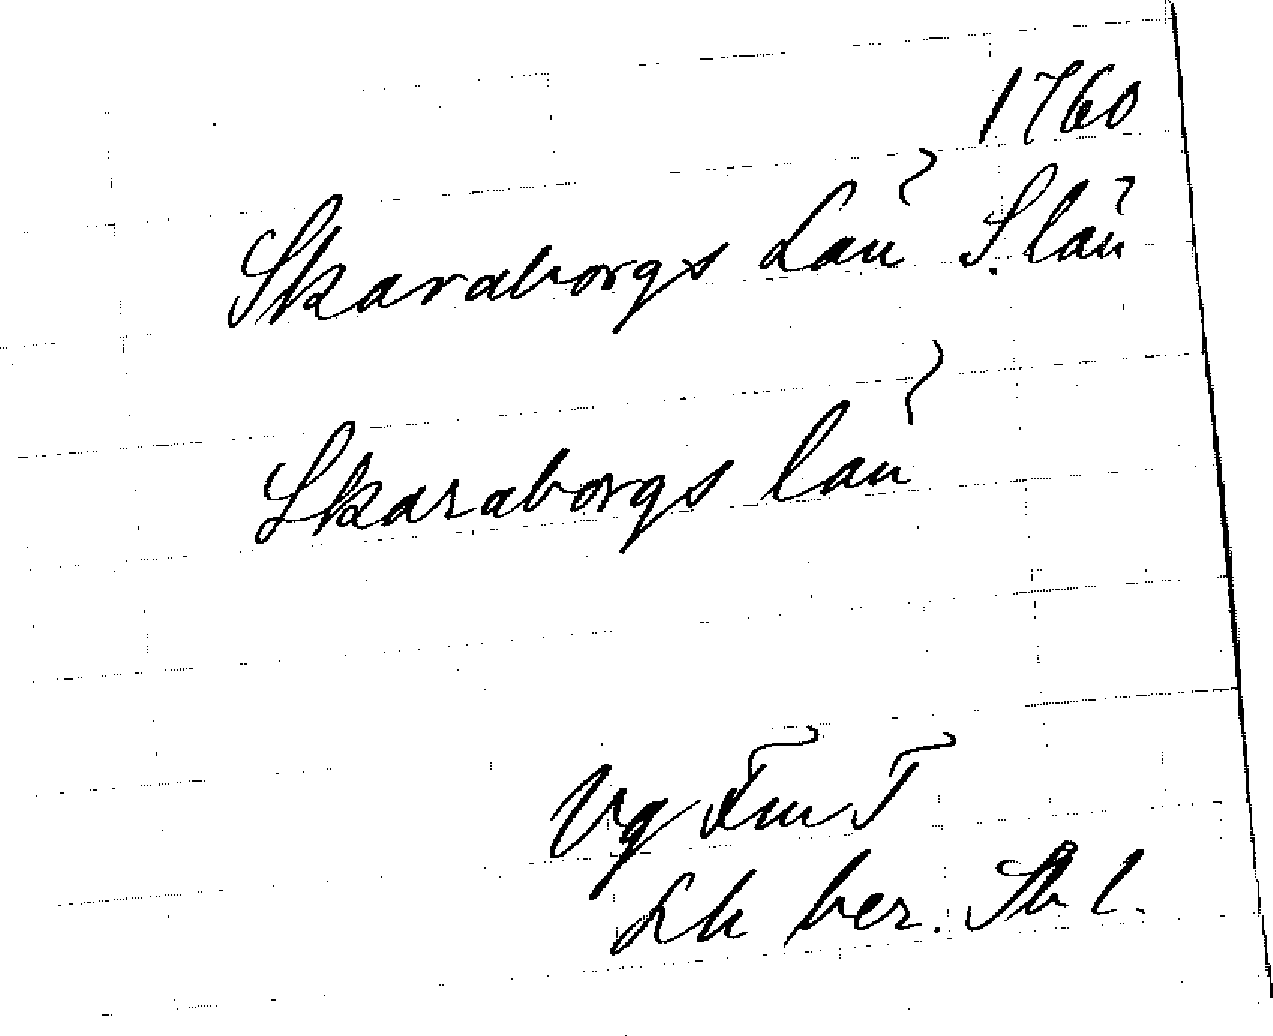 1760
Skaraborgs Län S. län
Skaraborgs län
Vg Fm T
Lh ber. Sk l.